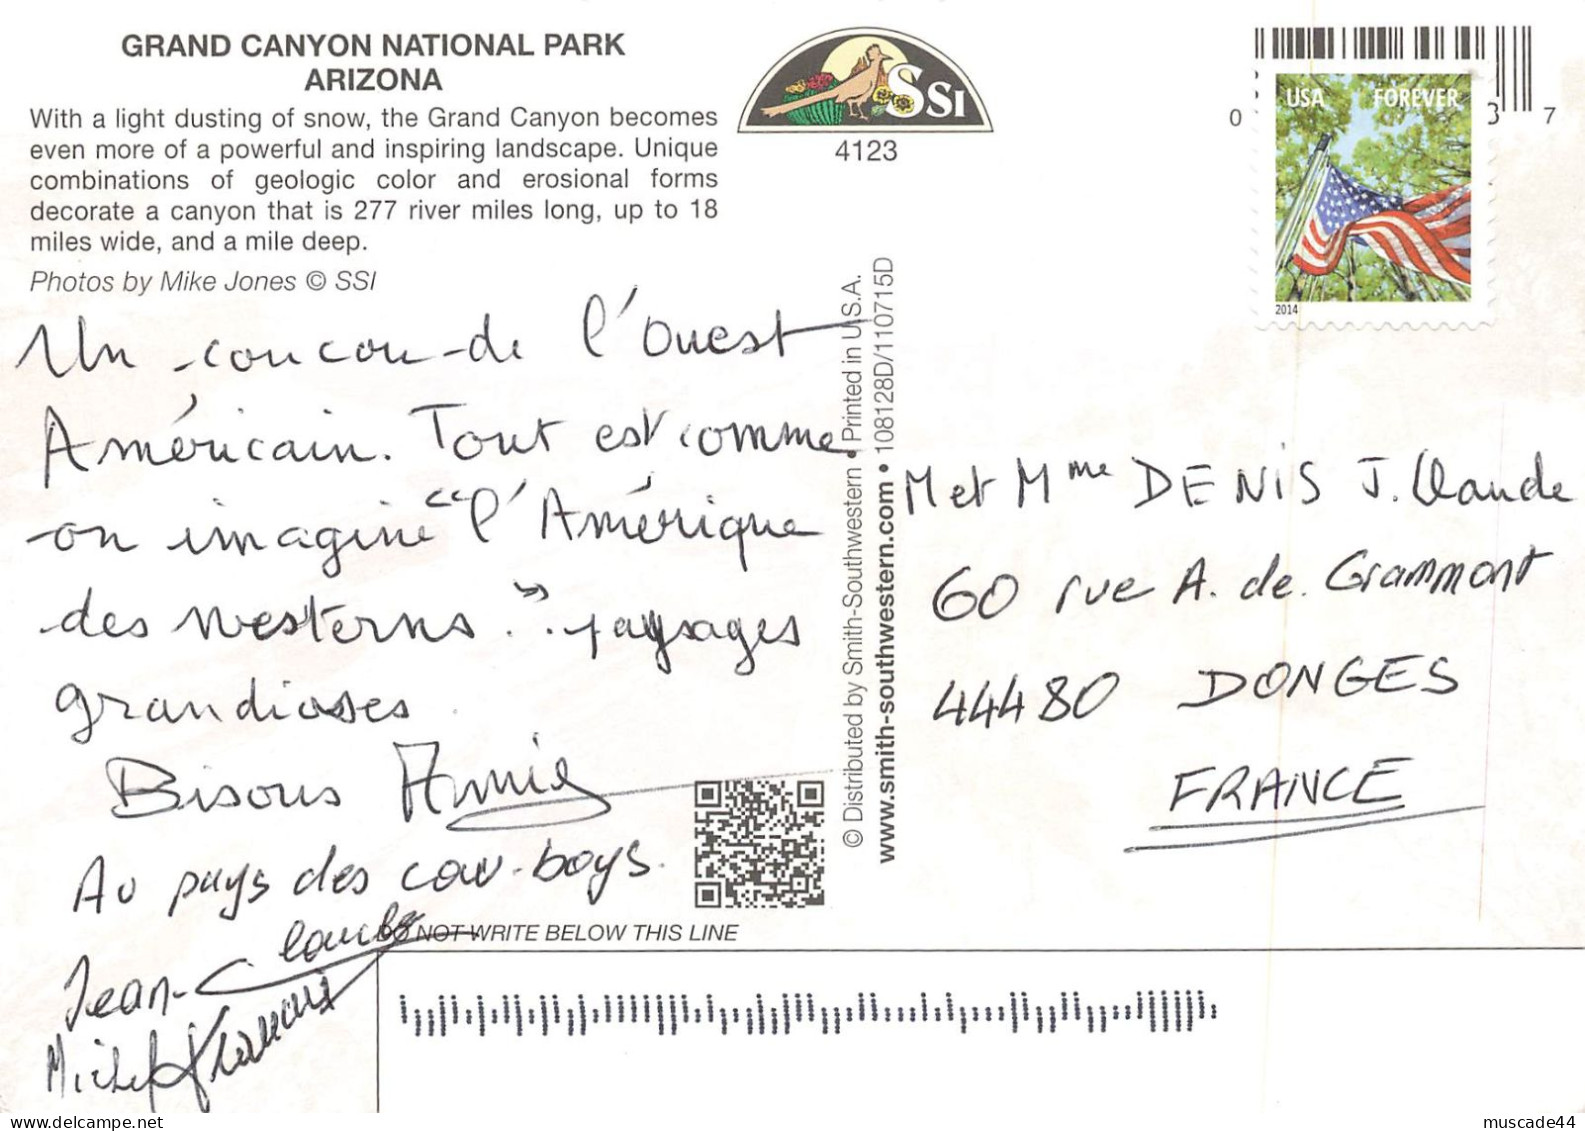 GRAND CANYON NATIONAL PARK
ARIZONA
With a light dusting of snow, the Grand Canyon becomes
even more of a powerful and inspiring landscape. Unique
combinations of geologic color and erosional forms
decorate a canyon that is 277 river miles long, up to 18
miles wide, and a mile deep.
Photos by Mike Jones © SSI
SSI
4123
USA FOREVER
2014
0 3 7
Un coucou de l'Ouest
Américain. Tout est comme
on imagine "l'Amérique
des westerns". paysages
grandioses.
Bisous Annie
Au pays des cow-boys.
Jean-Claude
Michel Francoise
DO NOT WRITE BELOW THIS LINE
© Distributed by Smith-Southwestern • Printed in U.S.A.
www.smith-southwestern.com • 108128D/110715D
M et Mme DENIS J. Claude
60 rue A. de. Grammont
44480 DONGES
FRANCE
muscade44